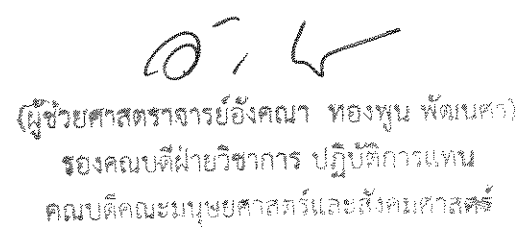 (ผู้ช่วยศาสตราจารย์อังคณา ทองพูน พัฒนศร)
รองคณบดีฝ่ายวิชาการ ปฏิบัติการแทน
คณบดีคณะมนุษยศาสตร์และสังคมศาสตร์